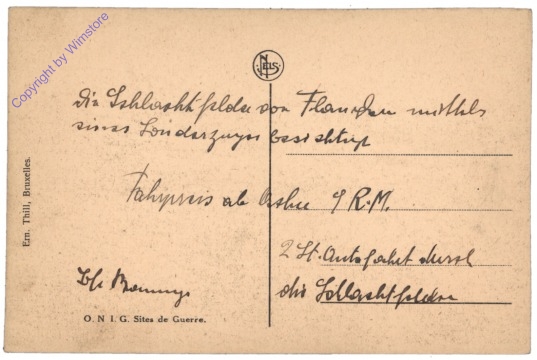 Copyright by Wimstore
NELS
die Schlachtfelder von Flandern mittels
eines Sonderzuges besichtigt
Fahrpreis ab 9 R.M.
2 St. Autofahrt durch
die Schlachtfelder
Ern. Thill, Bruxelles.
O. N I. G. Sites de Guerre.